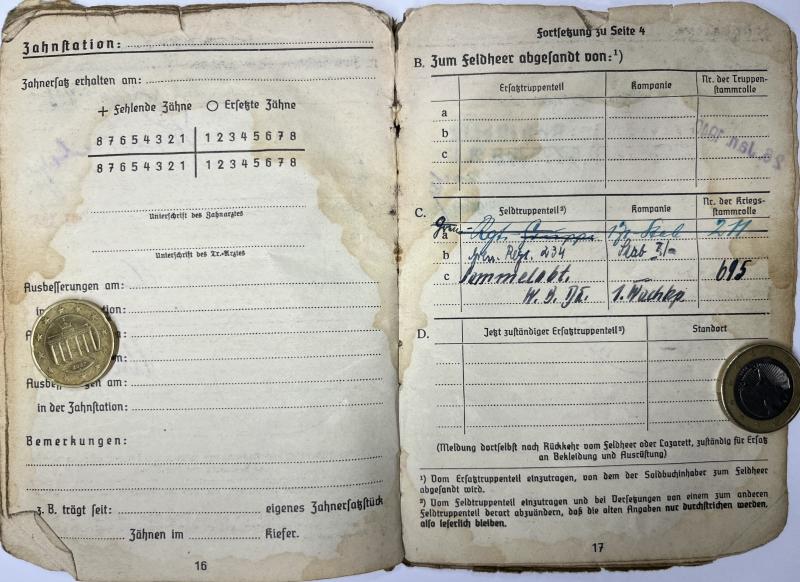 Zahnstation:
Zahnersatz erhalten am:
+ Fehlende Zähne O Ersetzte Zähne
8 7 6 5 4 3 2 1 | 1 2 3 4 5 6 7 8
8 7 6 5 4 3 2 1 | 1 2 3 4 5 6 7 8
Unterschrift des Zahnarztes
Unterschrift des Tr.-Arztes
Ausbesserungen am:
in
tion:
Ausbess gen am:
in der Zahnstation:
Bemerkungen:
z. B. trägt seit: eigenes Zahnersatzstück
Zähnen im Kiefer.
16
Fortsetzung zu Seite 4
B. Zum Feldheer abgesandt von:¹)
Ersatztruppenteil Kompanie Nr. der Truppen-
stammrolle
a
b
c
26. Jan. 194
C. Feldtruppenteil²) Kompanie Nr. der Kriegs-
stammrolle
a
b 234
c Sammelabt. 695
1. Wachkp.
D. Jetzt zuständiger Ersatztruppenteil²) Standort
(Meldung dortselbst nach Rückkehr vom Feldheer oder Lazarett, zuständig für Ersatz
an Bekleidung und Ausrüstung)
¹) Vom Ersatztruppenteil einzutragen, von dem der Soldbuchinhaber zum Feldheer
abgesandt wird.
²) Vom Feldtruppenteil einzutragen und bei Versetzungen von einem zum anderen
Feldtruppenteil derart abzuändern, daß die alten Angaben nur durchstrichen werden,
also leserlich bleiben.
17